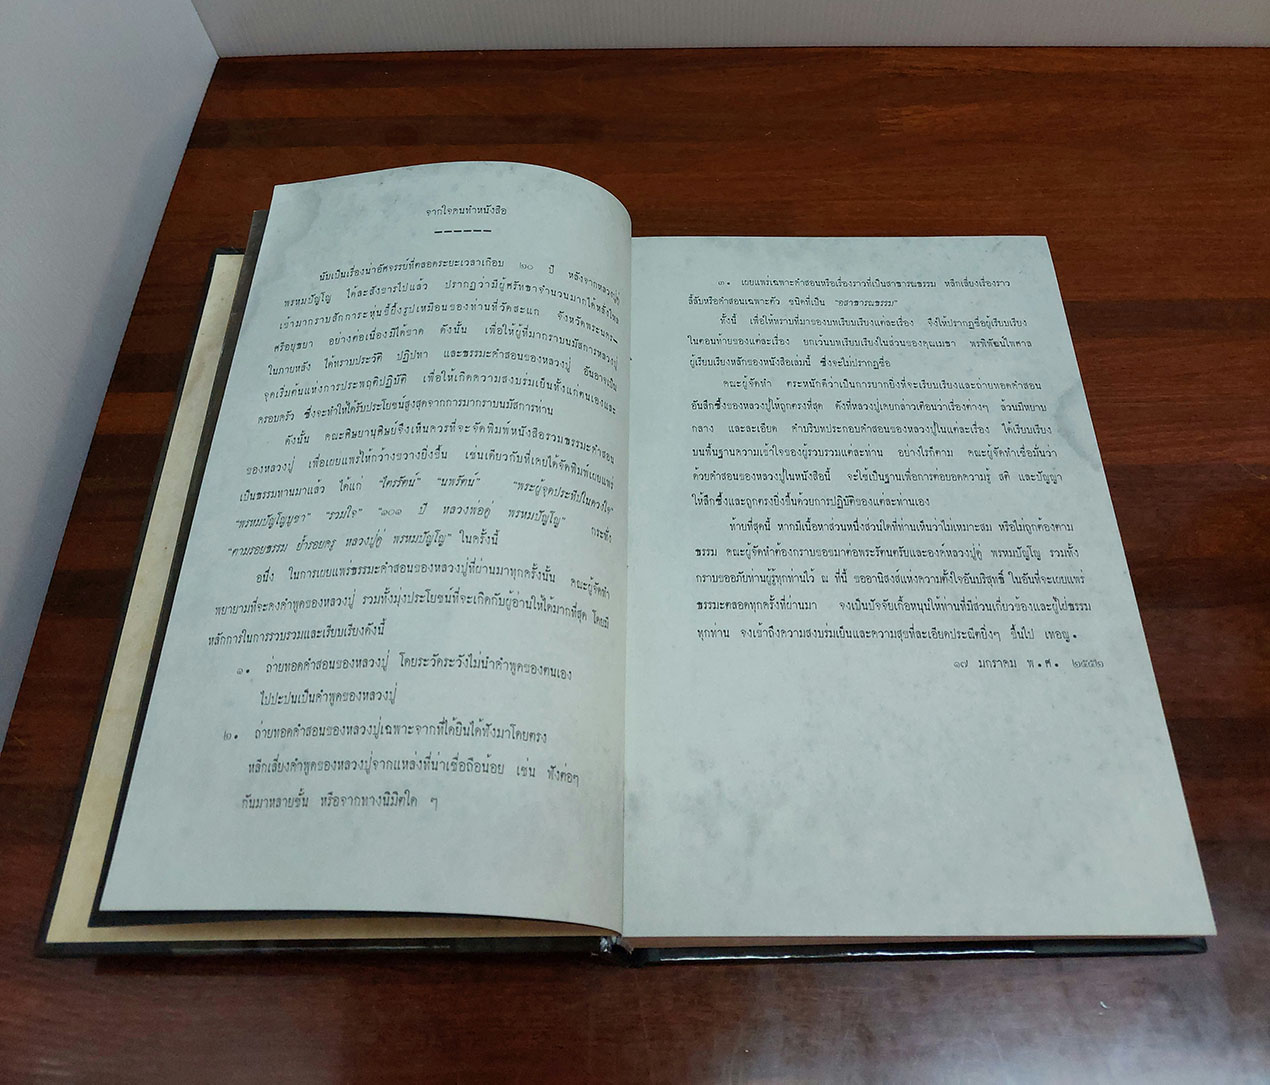 จากใจคนทำหนังสือ
------
นับเป็นเรื่องน่าอัศจรรย์ที่ตลอดระยะเวลาเกือบ ๒๐ ปี หลังจากหลวงปู่ดู่
พรหมปัญโญ ได้ละสังขารไปแล้ว ปรากฏว่ามีผู้ศรัทธาจำนวนมากได้หลั่งไหล
เข้ามากราบสักการะหุ่นขี้ผึ้งรูปเหมือนของท่านที่วัดสะแก จังหวัดพระนคร-
ศรีอยุธยา อย่างต่อเนื่องมิได้ขาด ดังนั้น เพื่อให้ผู้ที่มากราบนมัสการหลวงปู่
ในภายหลัง ได้ทราบประวัติ ปฏิปทา และธรรมะคำสอนของหลวงปู่ อันอาจเป็น
จุดเริ่มต้นแห่งการประพฤติปฏิบัติ เพื่อให้เกิดความสงบร่มเย็นทั้งแก่ตนเองและ
ครอบครัว ซึ่งจะทำให้ได้รับประโยชน์สูงสุดจากการมากราบนมัสการท่าน
ดังนั้น คณะศิษยานุศิษย์จึงเห็นควรที่จะจัดพิมพ์หนังสือรวมธรรมะคำสอน
ของหลวงปู่ เพื่อเผยแพร่ให้กว้างขวางยิ่งขึ้น เช่นเดียวกับที่เคยได้จัดพิมพ์เผยแพร่
เป็นธรรมทานมาแล้ว ได้แก่ "ไตรรัตน์" "นพรัตน์" "พระผู้จุดประทีปในดวงใจ"
"พรหมปัญโญบูชา" "รวมใจ" "๑๐๑ ปี หลวงพ่อดู่ พรหมปัญโญ" กระทั่ง
"ตามรอยธรรม ย้ำรอยครู หลวงปู่ดู่ พรหมปัญโญ" ในครั้งนี้
อนึ่ง ในการเผยแพร่ธรรมะคำสอนของหลวงปู่ที่ผ่านมาทุกครั้งนั้น คณะผู้จัดทำ
พยายามที่จะคงคำพูดของหลวงปู่ รวมทั้งมุ่งประโยชน์ที่จะเกิดกับผู้อ่านให้ได้มากที่สุด โดยมี
หลักการในการรวบรวมและเรียบเรียงดังนี้
๑. ถ่ายทอดคำสอนของหลวงปู่ โดยระวัดระวังไม่นำคำพูดของตนเอง
ไปปะปนเป็นคำพูดของหลวงปู่
๒. ถ่ายทอดคำสอนของหลวงปู่เฉพาะจากที่ได้ยินได้ฟังมาโดยตรง
หลีกเลี่ยงคำพูดของหลวงปู่จากแหล่งที่น่าเชื่อถือน้อย เช่น ฟังต่อๆ
กันมาหลายชั้น หรือจากทางนิมิตใด ๆ
๓. เผยแพร่เฉพาะคำสอนหรือเรื่องราวที่เป็นสาธารณธรรม หลีกเลี่ยงเรื่องราว
ลี้ลับหรือคำสอนเฉพาะตัว ชนิดที่เป็น "อสาธารณธรรม"
ทั้งนี้ เพื่อให้ทราบที่มาของบทเรียบเรียงแต่ละเรื่อง จึงให้ปรากฏชื่อผู้เรียบเรียง
ในตอนท้ายของแต่ละเรื่อง ยกเว้นบทเรียบเรียงในส่วนของคุณเมธา พรพิพัฒน์ไพศาล
ผู้เรียบเรียงหลักของหนังสือเล่มนี้ ซึ่งจะไม่ปรากฏชื่อ
คณะผู้จัดทำ ตระหนักดีว่าเป็นการยากยิ่งที่จะเรียบเรียงและถ่ายทอดคำสอน
อันลึกซึ้งของหลวงปู่ให้ถูกตรงที่สุด ดังที่หลวงปู่เคยกล่าวเตือนว่าเรื่องต่างๆ ล้วนมีหยาบ
กลาง และละเอียด คำบริบทประกอบคำสอนของหลวงปู่ในแต่ละเรื่อง ได้เรียบเรียง
บนพื้นฐานความเข้าใจของผู้รวบรวมแต่ละท่าน อย่างไรก็ตาม คณะผู้จัดทำเชื่อมั่นว่า
ด้วยคำสอนของหลวงปู่ในหนังสือนี้ จะใช้เป็นฐานเพื่อการต่อยอดความรู้ สติ และปัญญา
ให้ลึกซึ้งและถูกตรงยิ่งขึ้นด้วยการปฏิบัติของแต่ละท่านเอง
ท้ายที่สุดนี้ หากมีเนื้อหาส่วนหนึ่งส่วนใดที่ท่านเห็นว่าไม่เหมาะสม หรือไม่ถูกต้องตาม
ธรรม คณะผู้จัดทำต้องกราบขอขมาต่อพระรัตนตรัยและองค์หลวงปู่ดู่ พรหมปัญโญ รวมทั้ง
กราบขออภัยท่านผู้รู้ทุกท่านไว้ ณ ที่นี้ ขออานิสงส์แห่งความตั้งใจอันบริสุทธิ์ ในอันที่จะเผยแพร่
ธรรมะตลอดทุกครั้งที่ผ่านมา จงเป็นปัจจัยเกื้อหนุนให้ท่านที่มีส่วนเกี่ยวข้องและผู้ใฝ่ธรรม
ทุกท่าน จงเข้าถึงความสงบร่มเย็นและความสุขที่ละเอียดประณีตยิ่งๆ ขึ้นไป เทอญ.
๑๗ มกราคม พ.ศ. ๒๕๕๒